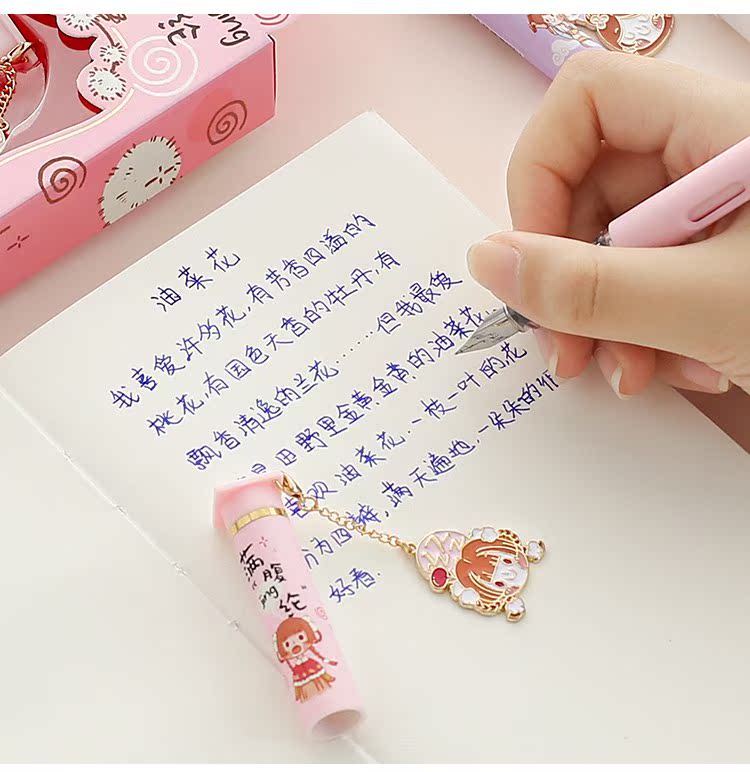 油菜花
我喜爱许多花,有芳香四溢的
桃花,有国色天香的牡丹,有
飘香清逸的兰花……但我最爱
田野里金黄金黄的油菜花
喜欢油菜花.一枝一叶的花
为四瓣,满天遍地,一朵朵的
好看.
ing
满腹
ing
纶